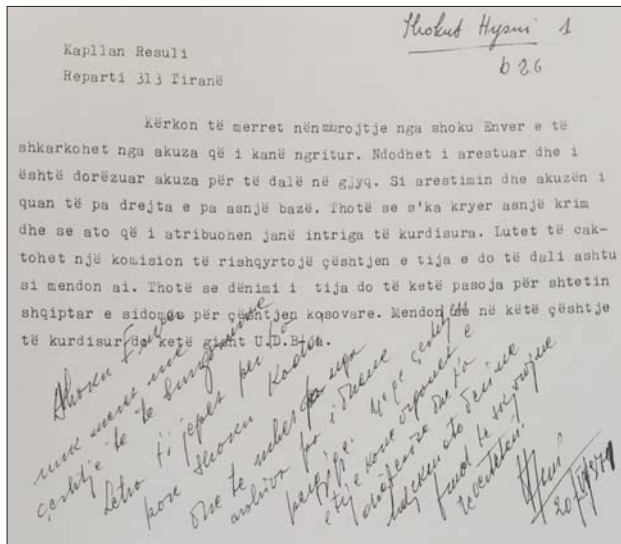 Shokut Hysni 1
b 26
Kapllan Resuli
Reparti 313 Tiranë
Kërkon të merret nënmbrojtje nga shoku Enver e të
shkarkohet nga akuza që i kanë ngritur. Ndodhet i arestuar dhe i
është dorëzuar akuza për të dalë në gjyq. Si arestimin dhe akuzën i
quan të pa drejta e pa asnjë bazë. Thotë se s'ka kryer asnjë krim
dhe se ato që i atribuohen janë intriga të kurdisura. Lutet të cak-
tohet një komision të rishqyrtojë çështjen e tija e do të dali ashtu
si mendon ai. Thotë se dënimi i tija do të ketë pasoja për shtetin
shqiptar e sidomos për çështjen kosovare. Mendon se në këtë çështje
të kurdisur do ketë gisht U.D.B-ja.
Shoku Enver
nuk merret me
çështje të të burgosurve
Letra t'i jepet për
por shokut Kadri
dhe të mbetet pa nga
arshiva pa i dhënë
përgjigje. çështjen
e tij e kanë organet e
dhe t'a
ndjekin ato deri në
fund të
20/